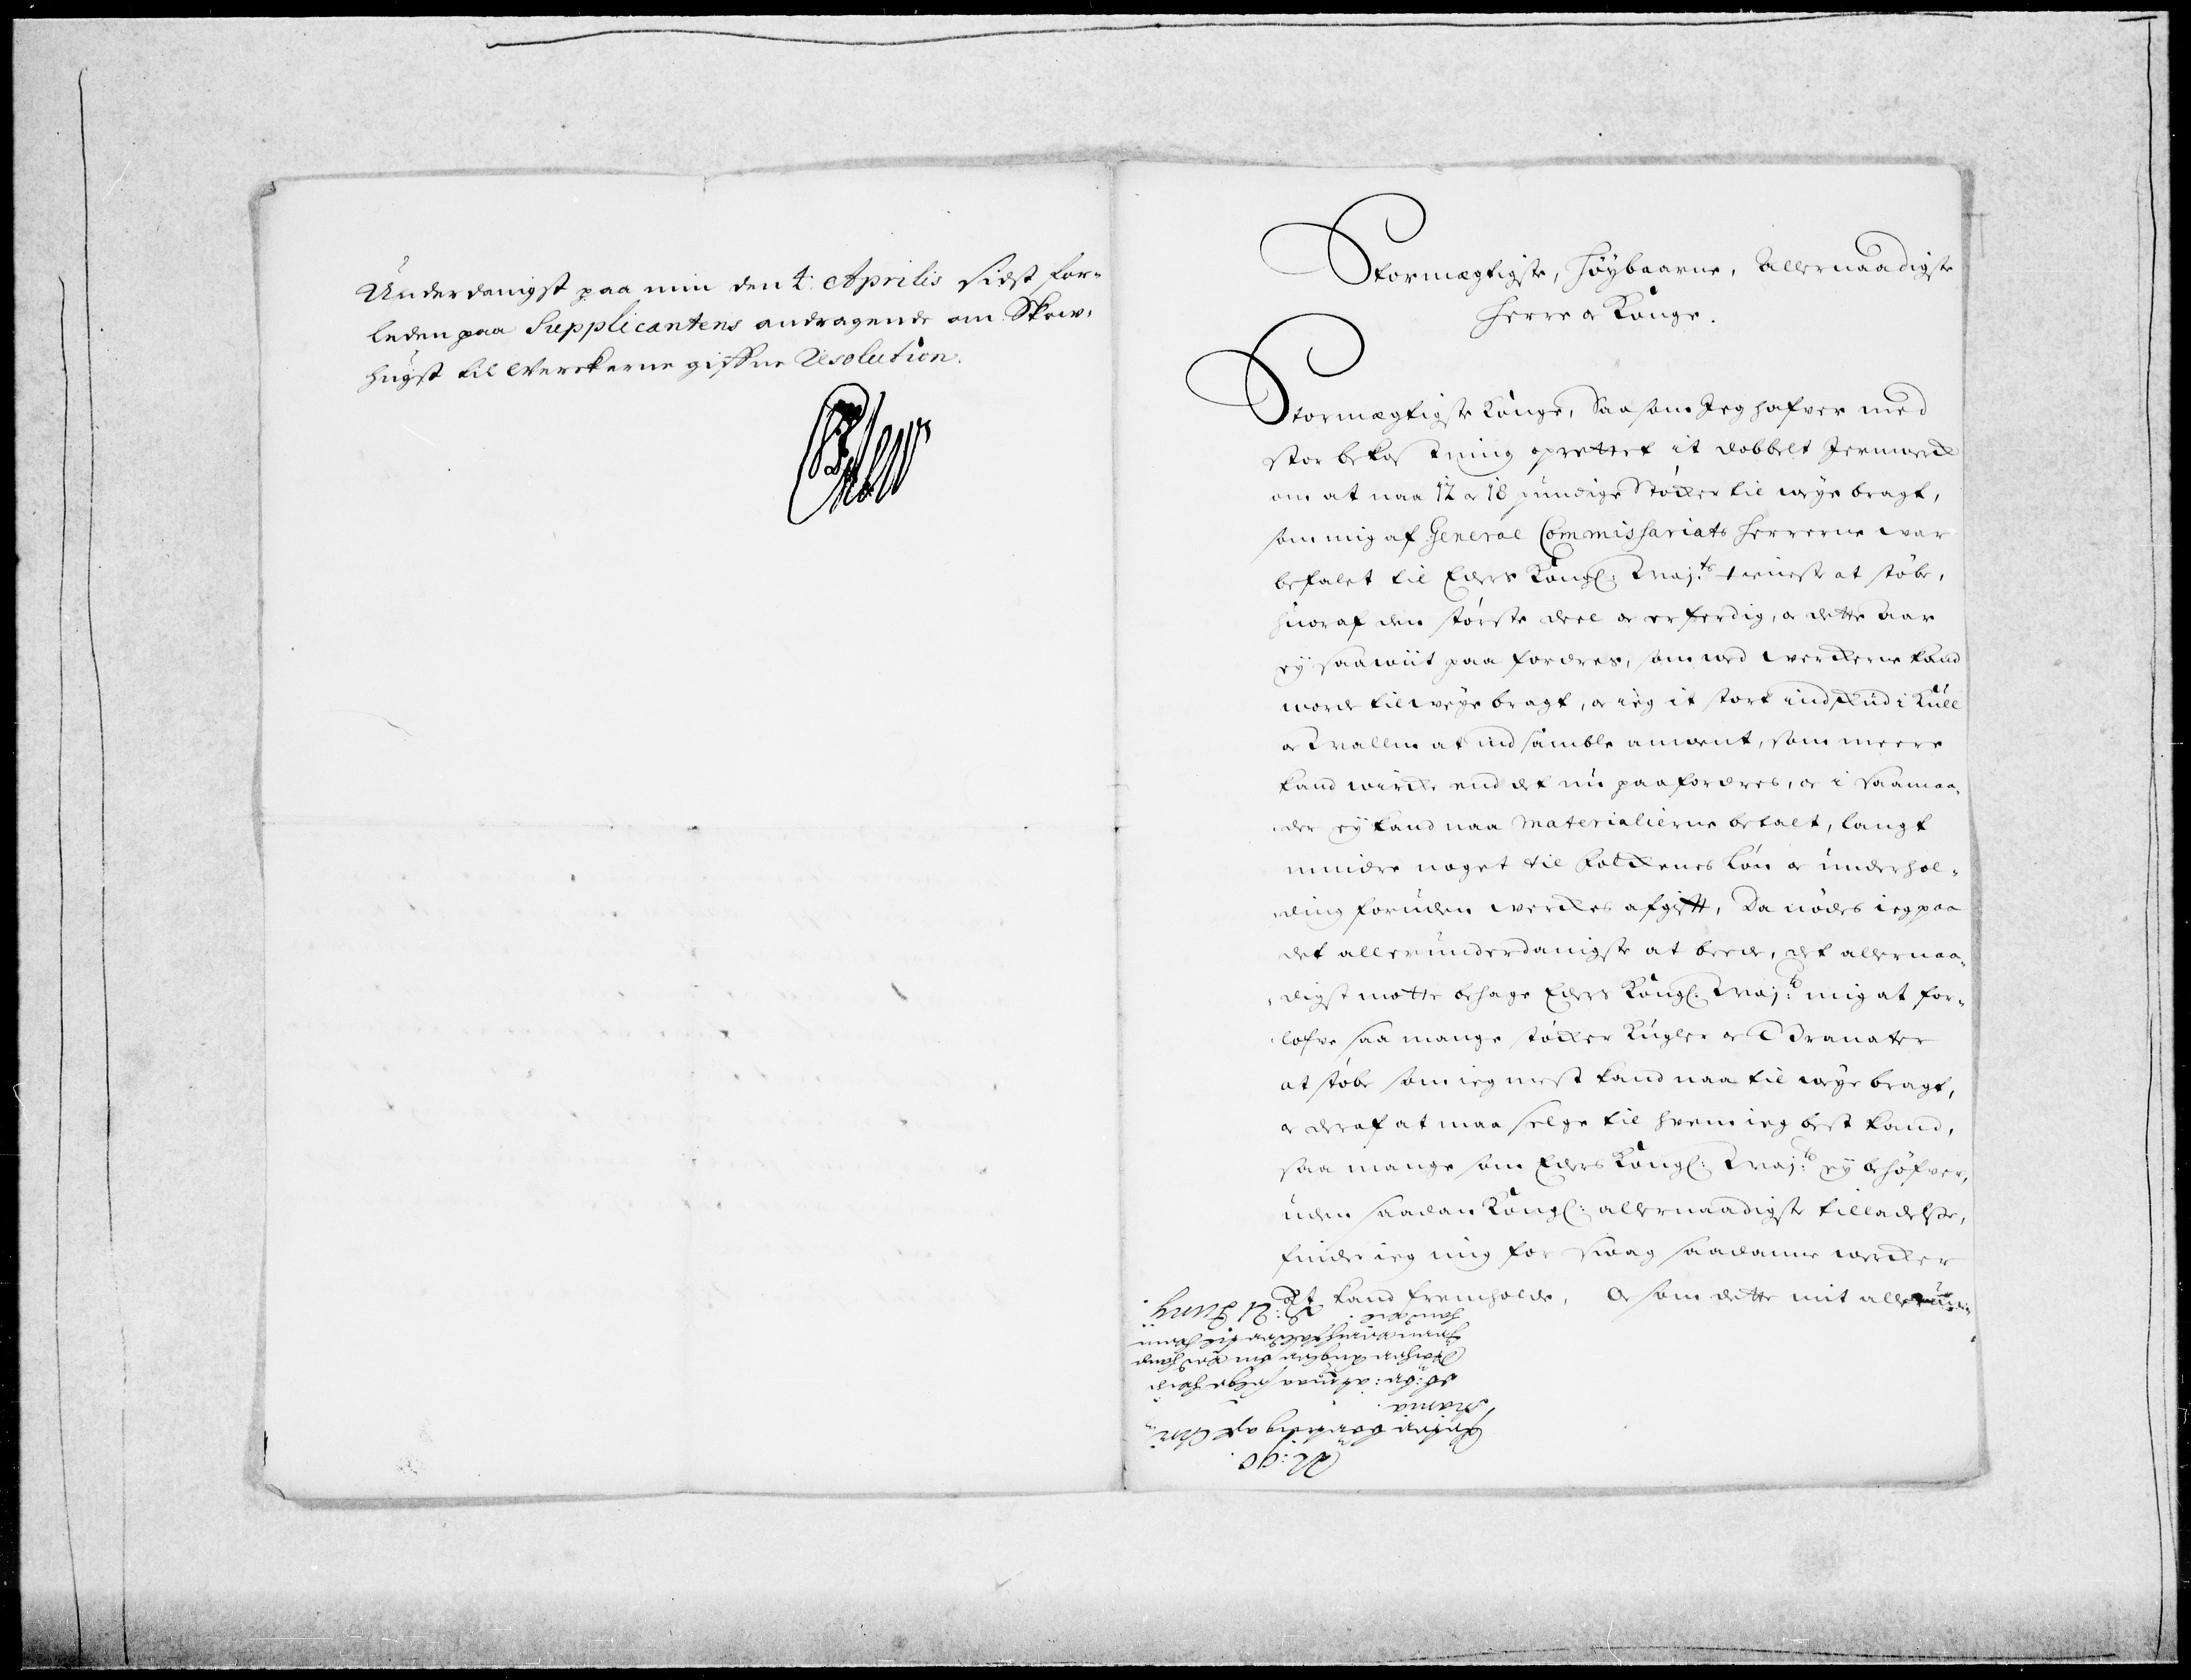 Underdanigst paa min den 4: Aprilis sidst for-
leden paa Supplicantens andragende om Skow-
hugst til Werckerne gifne Resolution.
Stormægtigste, Høybaarne, Allernaadigste
Herre og Konge.
Stormægtigste Konge, Saasom Jeg hafver med
stor bekostning oprettet it dobbelt Jernwerck
om at naa 12 og 18 pundige Støcker til weye bragt,
som mig af General Commissariats Herrerne war
befalet til Eders Kongl: May:ts tieneste at støbe,
huoraf den største deel og er ferdig, og dette aar
ey saawiit paa fordres, som ved werckerne kand
worde tilweye bragt, og ieg it stort indkiud i Kull
og Mallm at indsamble anwent, som meere
kand wircke end det nu paafordres, og i saamaa-
der ey kand naa Materialierne betalt, langt
mindre noget til folckenes løn og underhol-
ding foruden werckes afgift, Da nødes ieg paa
det allerunderdanigste at beede, det allernaa-
digst motte behage Eders Kongl: May:ts mig at for-
lofve saa mange støcker Kugler og Granater
at støbe som ieg mest kand naa til weye bragt,
og deraf at maa selge til hvem ieg best kand,
saa mange som Eders Kongl: May:ts ey behøfver,
uden saadan Kongl: allernaadigste tilladelse,
finder ieg mig for swag saadanne wercker
at kand fremholde, Og som dette mit allerun-
N: 90.